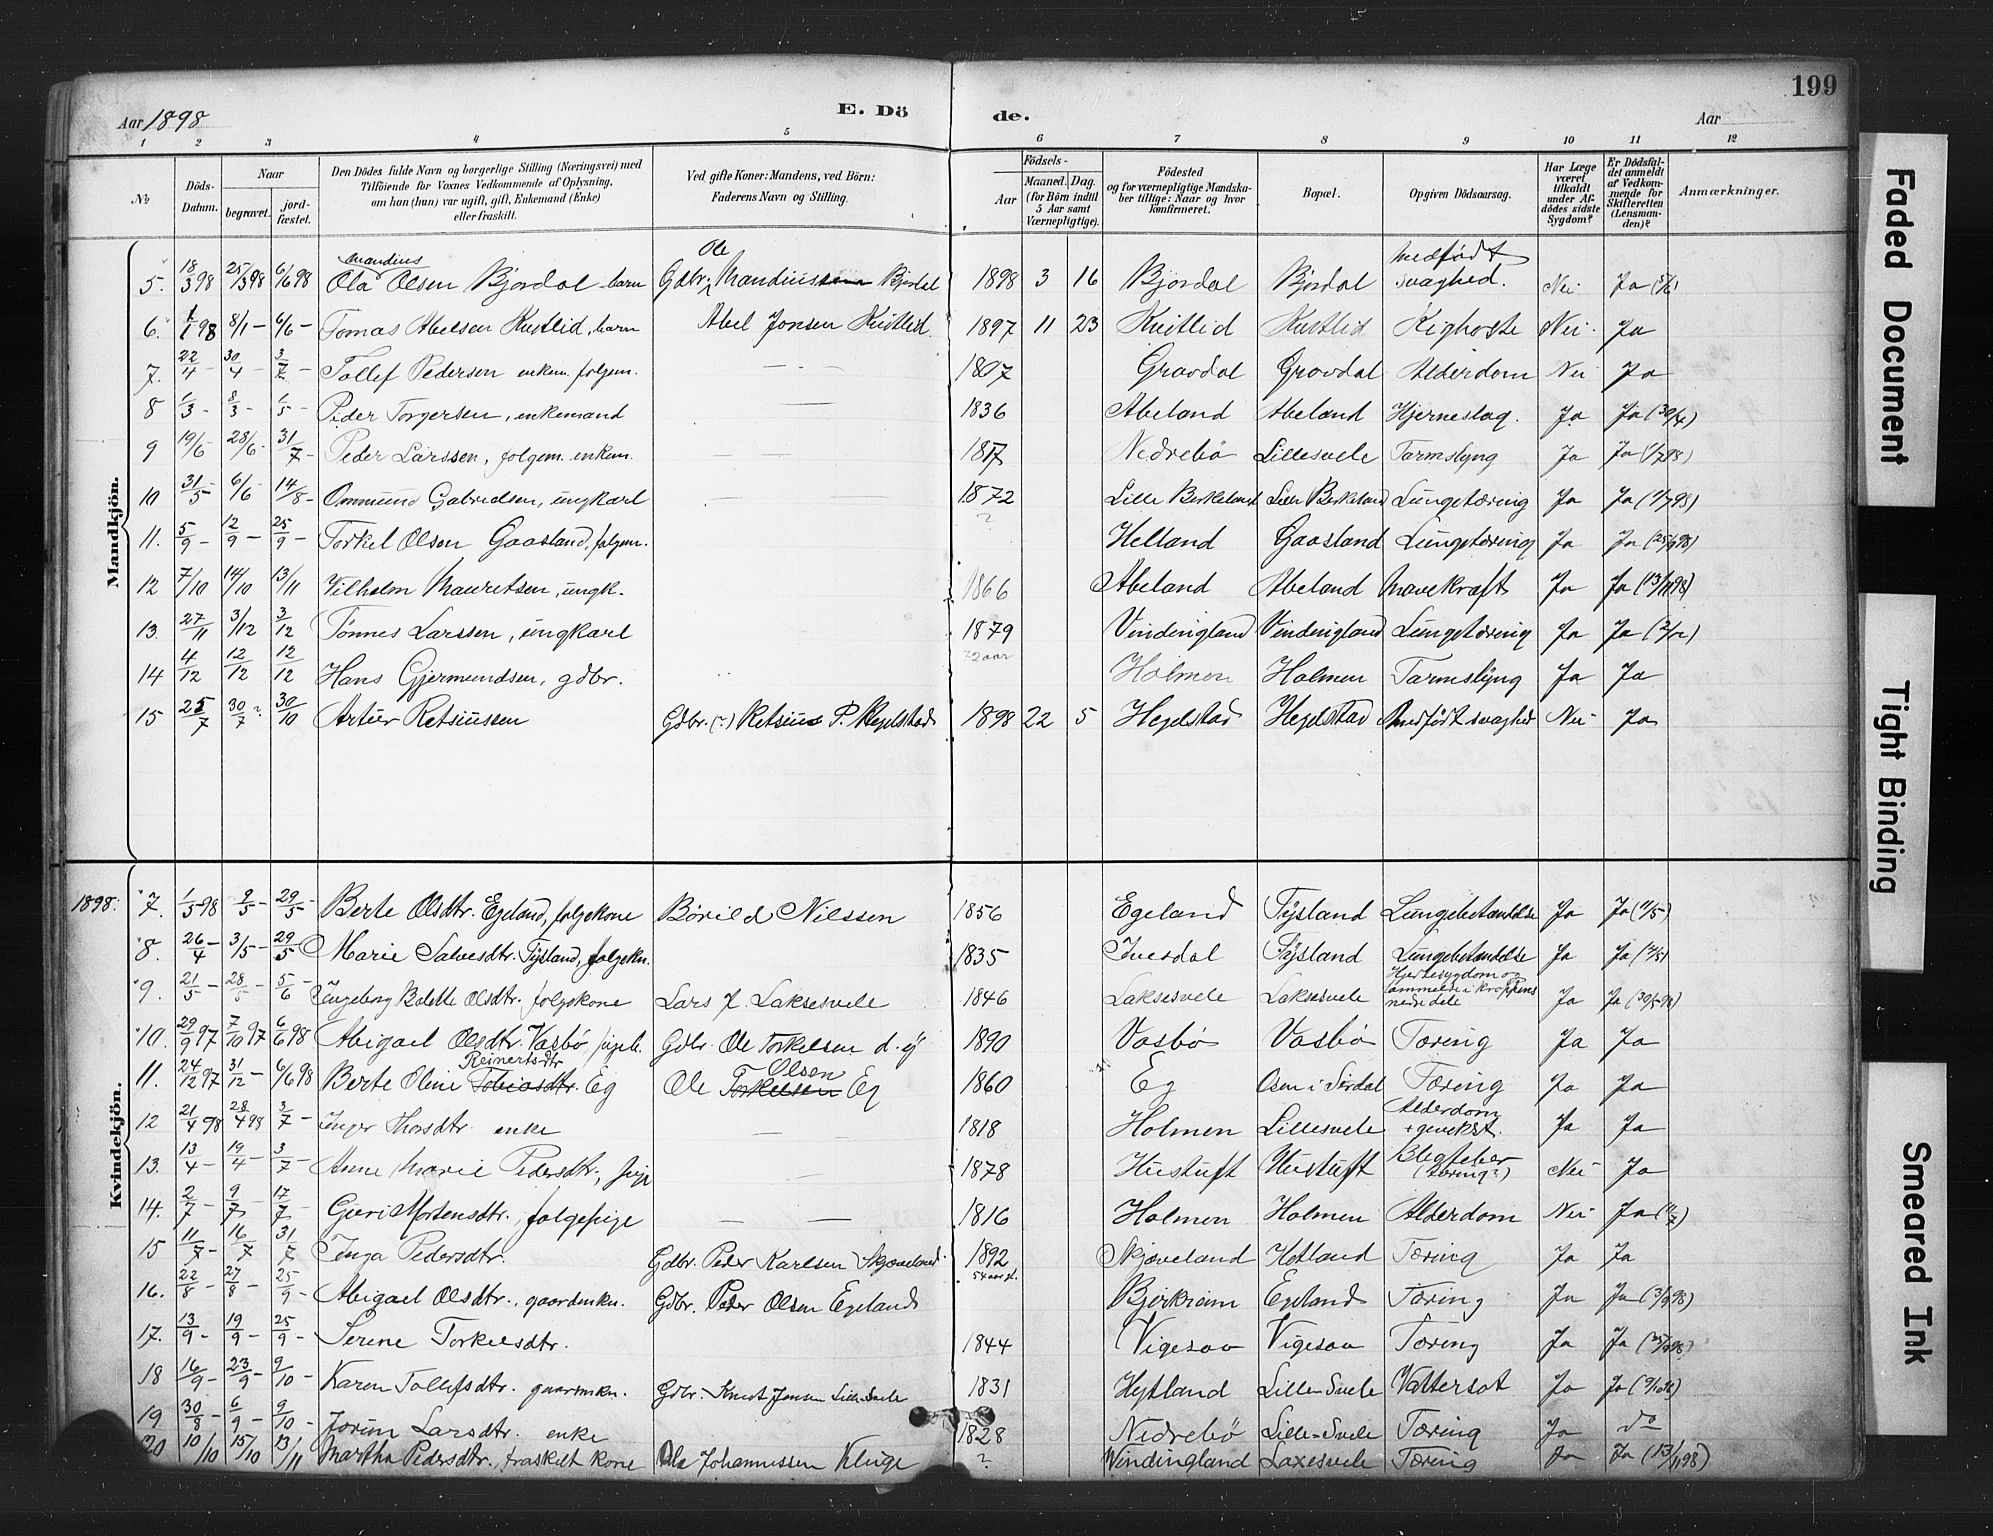 Aar 1898
E. Dö
de.
Aar
199
1 2 3 4 5 6 7 8 9 10 11 12
No
Döds-Datum.
Naar
begravet.
jordfæstet.
Den Dödes fulde Navn og borgerlige Stilling (Næringsvei) med Tilföiende for Voxnes Vedkommende af Oplysning, om han (hun) var ugift, gift, Enkemand (Enke) eller fraskilt.
Ved gifte Koner: Mandens, ved Börn: Faderens Navn og Stilling.
Födsels-
Aar
Maaned. Dag.
(for Börn indtil 5 Aar samt Værnepligtige).
Födested og for værnepligtige Mandskaber tillige: Naar og hvor konfirmeret.
Bopæl.
Opgiven Dödsaarsag.
Har Læge været tilkaldt under Afdödes sidste Sygdom?
Er Dödsfaldet anmeldt af Vedkommende for Skifteretten (Lensmanden)?
Anmærkninger.
Mandkjön.
5. 18/3 98 25/3 98 6/6 98 Ola Mandius Olsen Bjordal barn Gdbr. Ole Mandiussen Bjordal 1898 3 16 Bjordal Bjordal medfödt svaghed. Nei Ja (5/6)
6. 1/1 98 8/1 - 6/6 - Tomas Abelsen Kvitlid, barn Abel Jonsen Kvitlid. 1897 11 23 Kvitlid Kvitlid Kighoste Nei Ja
7. 22/4 - 30/4 - 3/7 - Tollef Pedersen enkem. folgem. — — 1807 Gravdal Gravdal Alderdom Nei Ja
8 1/3 - 8/3 - 1/5 - Peder Torgersen, enkemand — — 1836 Abeland Abeland Hjerneslag. Ja Ja (30/4)
9 19/6 - 28/6 - 31/7 - Peder Larssen, folgem. enkem. — — 1817 Nedrebö Lillesvele Tarmslyng Ja Ja (1/7 98)
10 31/5 - 6/6 - 14/8 - Ommund Gabrielsen, ungkarl — — 1872 Lille Birkeland Lille Birkeland Lungetæring Ja Ja (4/7 98)
11. 5/9 - 12/9 - 25/9 - Torkel Olsen Gaasland, folgem. ? Helland Gaasland Lungetæring Ja Ja (25/9 98)
12 7/10 14/10 13/11 Vilhelm Mauritsen, ungk. 1866 Abeland Abeland Mavekræft Ja Ja (13/11 98)
13. 27/11 3/12 3/12 Tönnes Larssen, ungkarl 1879 Vindingland Vindingland Lungetæring Ja Ja (3/12)
14 4/12 12/12 12/12 Hans Gjermundsen, gdbr. 72 aar Holmen Holmen Tarmslyng Ja Ja
15 25/7 30/7 ? 30/10 Artur Retsiussen Gdbr. (?) Retsius P. Hegelstad 1898 22 5 Hegelstad Hegelstad Medfödt svaghed Nei Ja
Kvindekjön.
1898. 7. 1/5 98 9/5 - 29/5 - Berte Olsdtr. Egeland, folgekone Börild Nilssen 1856 Egeland Tysland Lungebetændelse Ja Ja (11/5)
8. 26/4 - 3/5 - 29/5 Marie Salvesdtr. Tysland, folgekn. 1835 Iversdal Tysland Lungebetændelse Ja Ja (4/5)
9. 21/5 - 28/5 - 5/6 Ingeborg Bolette Olsdtr. folgekone Lars J. Laksesvele 1846 Laksesvele Laksesvele Hjertesygdom og lammelse i kroppens nedre dele Ja Ja (30/5 98)
10. 29/9 97 7/10 97 6/6 98 Abigael Olsdtr. Vasbö, pigeb. Gdbr. Ole Torkelsen d. y 1890 Vasbö Vasbö Tæring Ja Ja
11. 24/12 97 31/12 - 6/6 98 Berte Oline Tobiasdtr. Reinertsdtr Eg Ole Torkelsen Olsen Eg 1860 Eg Osen i Sirdal Tæring Ja Ja
12 21/4 98 28/4 98 3/7 - Inger Thorsdtr. enke — — 1818 Holmen Lillesvele Alderdom + gevekst. Ja Ja
13. 13/4 - 19/4 - 3/7 - Anne Marie Pedersdtr., pige — — 1878 Hustuft Hustuft Blegfeber (tæring?) Nei Ja
14. 2/7 - 9/7 - 17/7 Guri Mortensdtr., folgepige — — 1816 Holmen Holmen Alderdom Nei Ja (11/7)
15 11/7 - 16/7 31/7 Inga Pedersdtr. Gdbr. Peder Karlsen Skjæveland 1892 Skjæveland Hetland Tæring Ja Ja
16. 22/8 - 27/8 - 25/9 - Abigael Olsdtr., gaardmkn. Gdbr. Peder Olsen Egeland 54 aar gl. Bjerkreim Egeland Tæring Ja Ja (3/9 98)
17. 13/9 - 19/9 - 25/9 - Serine Torkelsdtr. 1844 Vigesaa Vigesaa Tæring Ja Ja (25/9 98)
18 16/9 - 23/9 - 9/10 - Karen Tollefsdtr. gaardmkn. Gdbr. Knut Jonsen Lille-Svele 1831 Hytland Lille-Svele Vattersot Ja Ja (9/10 98)
19 30/8 - 6/9 - 9/10 - Jorun Larsdtr. enke 1828 Nedrebö Lille-Svele Tæring Ja do
20 10/10 15/10 13/11 Martha Pedersdtr. fraskilt kone Ola Johannessen Kluge ? Vindingland Laxesvele Tæring Ja Ja (13/11 98)
Faded Document
Tight Binding
Smeared Ink